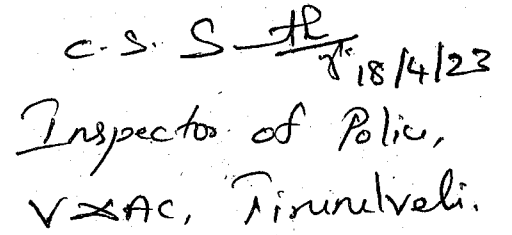 C. S. S th 18/4/23
Inspector of Police,
V&AC, Tirunelveli.